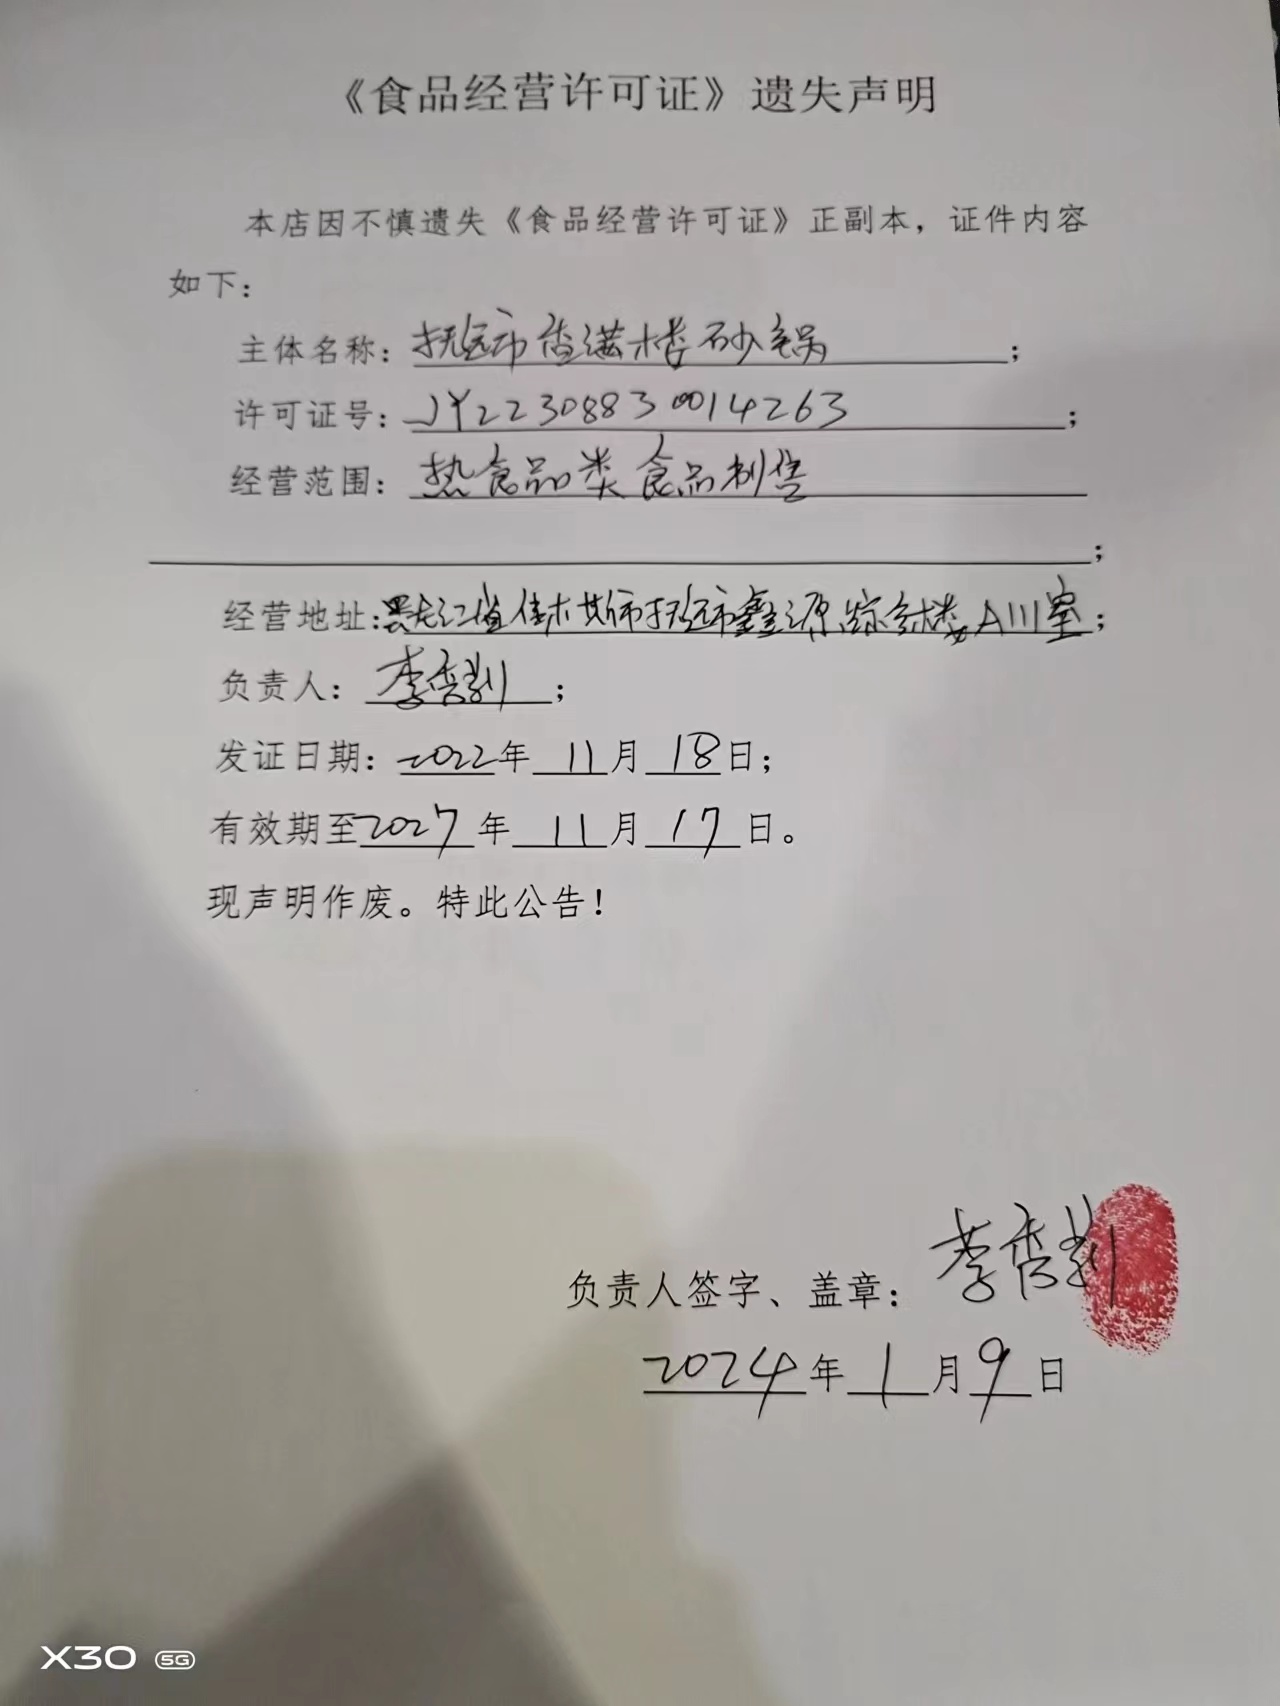 《食品经营许可证》遗失声明
本店因不慎遗失《食品经营许可证》正副本，证件内容
如下：
主体名称：抚远市香满楼砂锅；
许可证号：JY22308830014263；
经营范围：热食品类食品制售
；
经营地址：黑龙江省佳木斯市抚远市鑫源综合楼A111室；
负责人：李秀；
发证日期：2022年11月18日；
有效期至2027年11月17日。
现声明作废。特此公告！
负责人签字、盖章：李秀
2024年1月9日
X30 5G